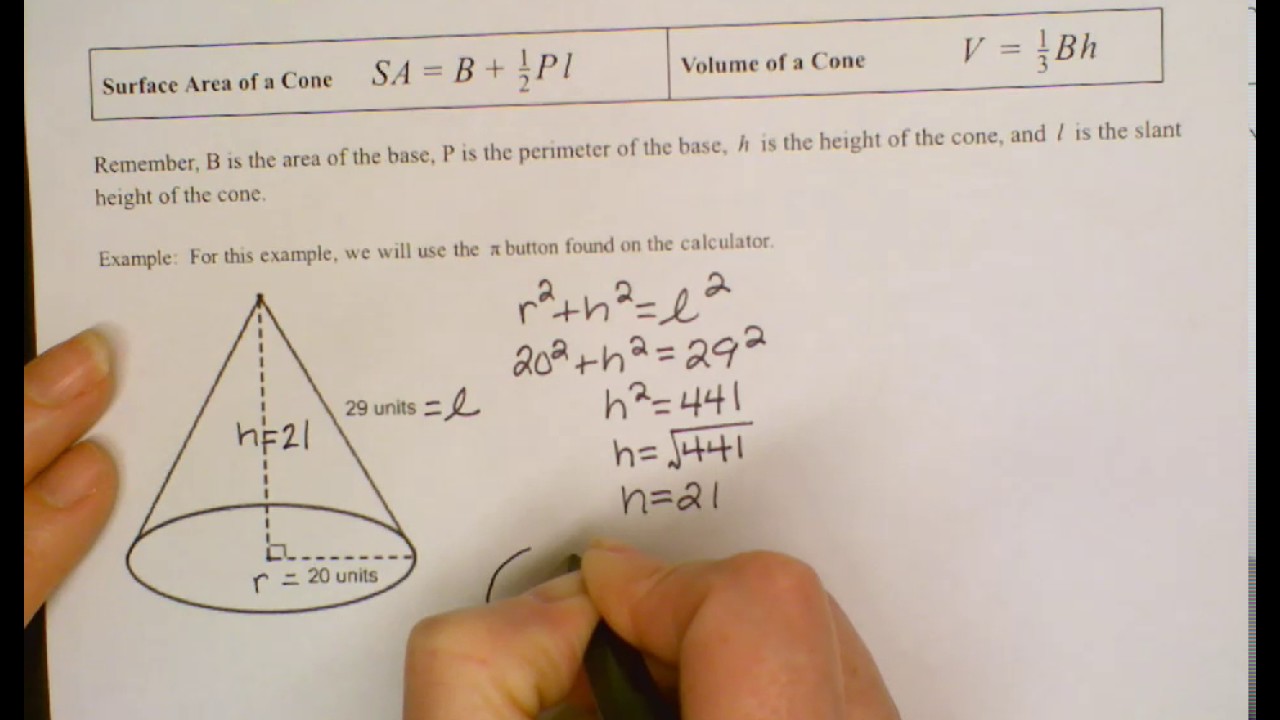 Surface Area of a Cone SA = B + ½Pl
Volume of a Cone V = ⅓Bh
Remember, B is the area of the base, P is the perimeter of the base, h is the height of the cone, and l is the slant
height of the cone.
Example: For this example, we will use the π button found on the calculator.
r² + h² = l²
20² + h² = 29²
h² = 441
h = √441
h = 21
29 units = l
h = 21
r = 20 units